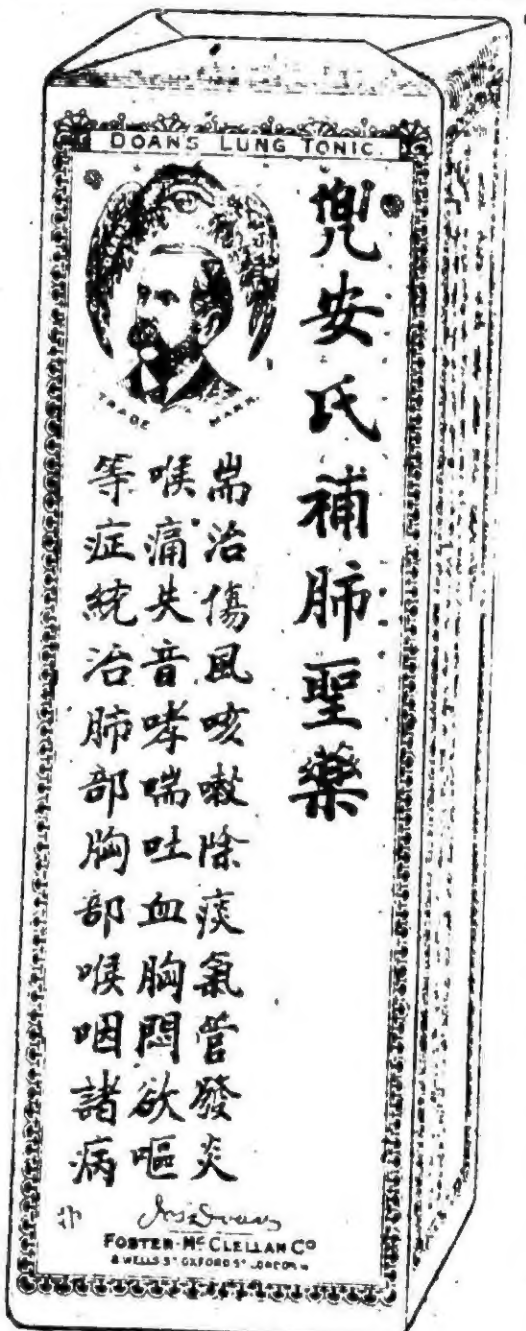 DOANS LUNG TONIC.
兜安氏補肺聖藥
TRADE MARK
耑治傷風咳嗽除痰氣管發炎
喉痛失音哮喘吐血胸悶欲嘔
等症統治肺部胸部喉咽諸病
FOSTER-McCLELLAN Co
8 WELLS ST OXFORD ST LONDON W